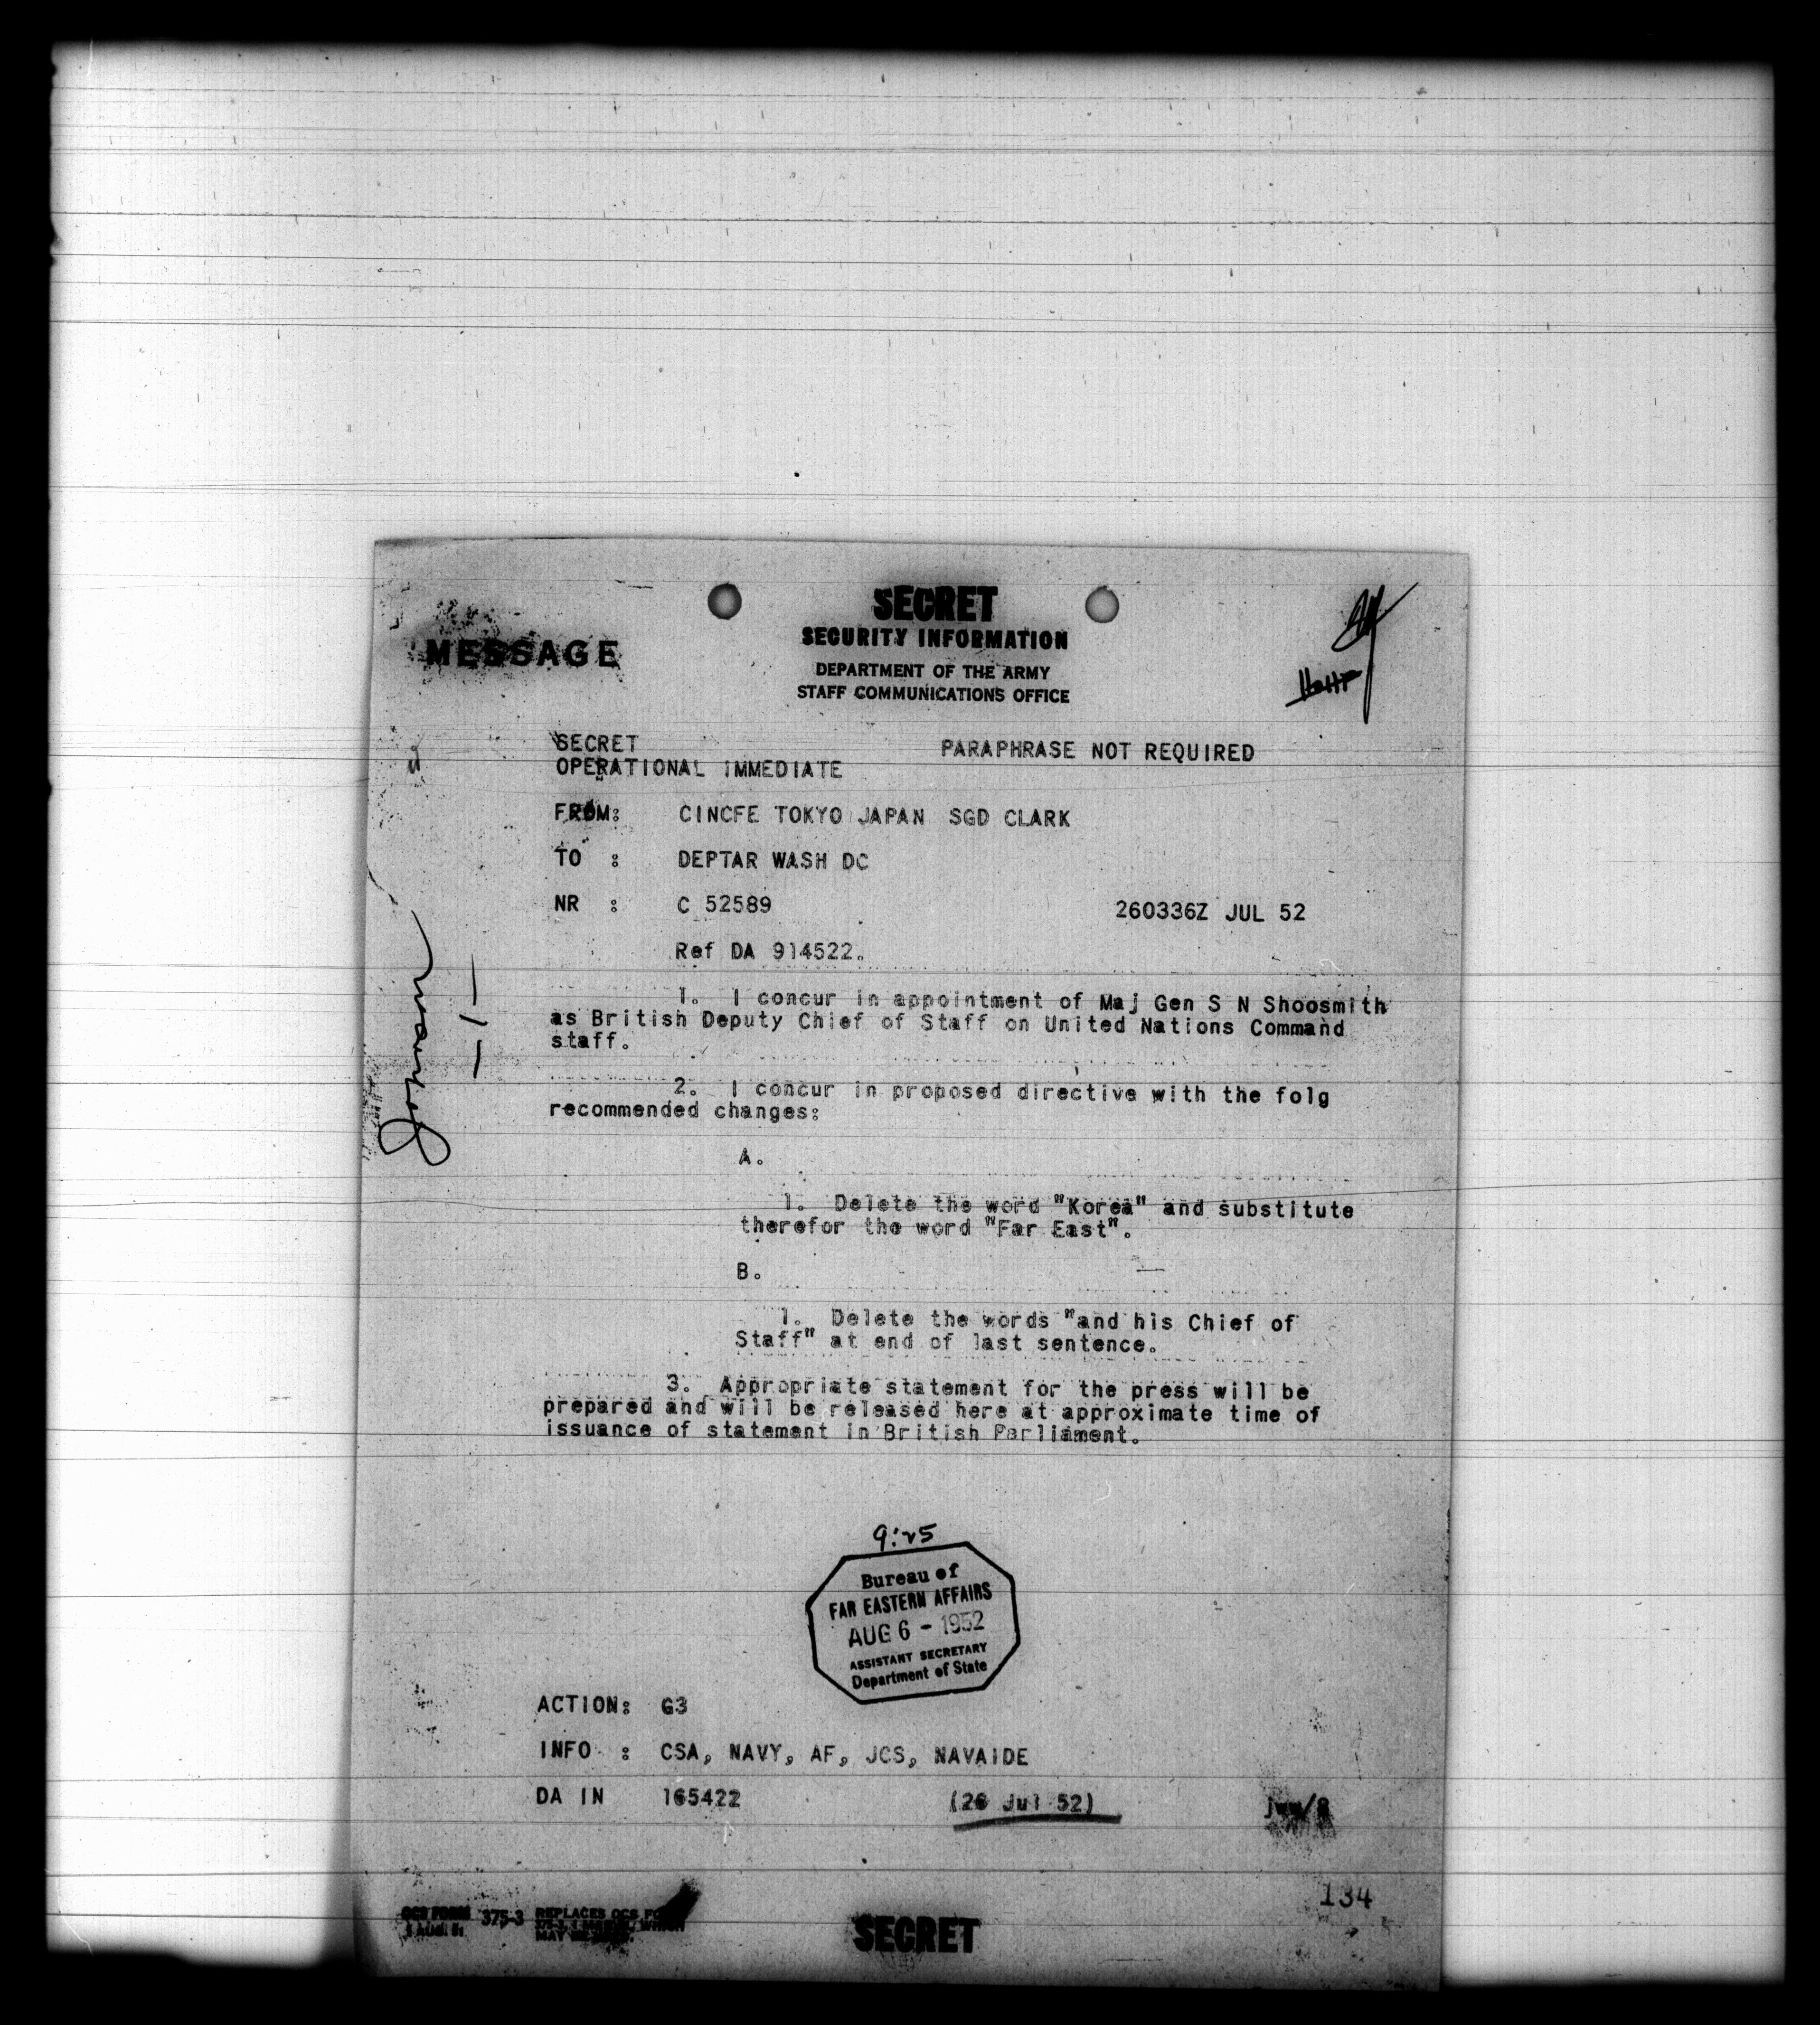 SECRET
SECURITY INFORMATION
MESSAGE
DEPARTMENT OF THE ARMY
STAFF COMMUNICATIONS OFFICE
SECRET PARAPHRASE NOT REQUIRED
OPERATIONAL IMMEDIATE
FROM: CINCFE TOKYO JAPAN SGD CLARK
TO : DEPTAR WASH DC
NR : C 52589 260336Z JUL 52
Ref DA 914522.
1. I concur in appointment of Maj Gen S N Shoosmith
as British Deputy Chief of Staff on United Nations Command
staff.
2. I concur in proposed directive with the folg
recommended changes:
A.
1. Delete the word "Korea" and substitute
therefor the word "Far East".
B.
1. Delete the words "and his Chief of
Staff" at end of last sentence.
3. Appropriate statement for the press will be
prepared and will be released here at approximate time of
issuance of statement in British Parliament.
Johnson
- 1 -
9:25
Bureau of
FAR EASTERN AFFAIRS
AUG 6 - 1952
ASSISTANT SECRETARY
Department of State
ACTION: G3
INFO : CSA, NAVY, AF, JCS, NAVAIDE
DA IN 165422 (26 Jul 52)
134
OCS FORM 375-3 REPLACES OCS
SECRET